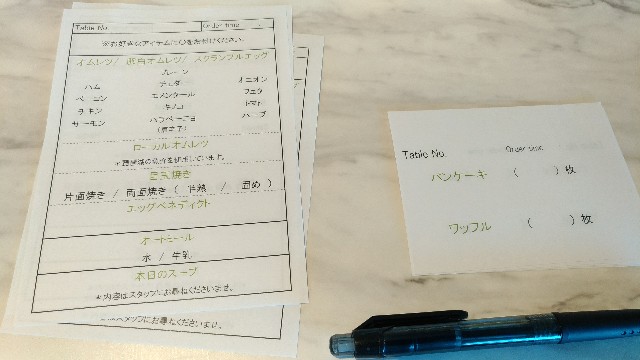 Table No.
Order time
※お好きなアイテムに○をお付けください。
オムレツ / 卵白オムレツ / スクランブルエッグ
プレーン
ハム
チェダー
オニオン
ベーコン
エメンタール
フェタ
チキン
キノコ
トマト
サーモン
ハラペーニョ
ハーブ
(唐辛子)
ローカルオムレツ
目玉焼き
片面焼き / 両面焼き ( 半熟 / 固め )
エッグベネディクト
オートミール
水 / 牛乳
本日のスープ
*内容はスタッフにお尋ねくださいませ。
スタッフにお尋ねくださいませ。
Table No.
Order time
パンケーキ ( )枚
ワッフル ( )枚